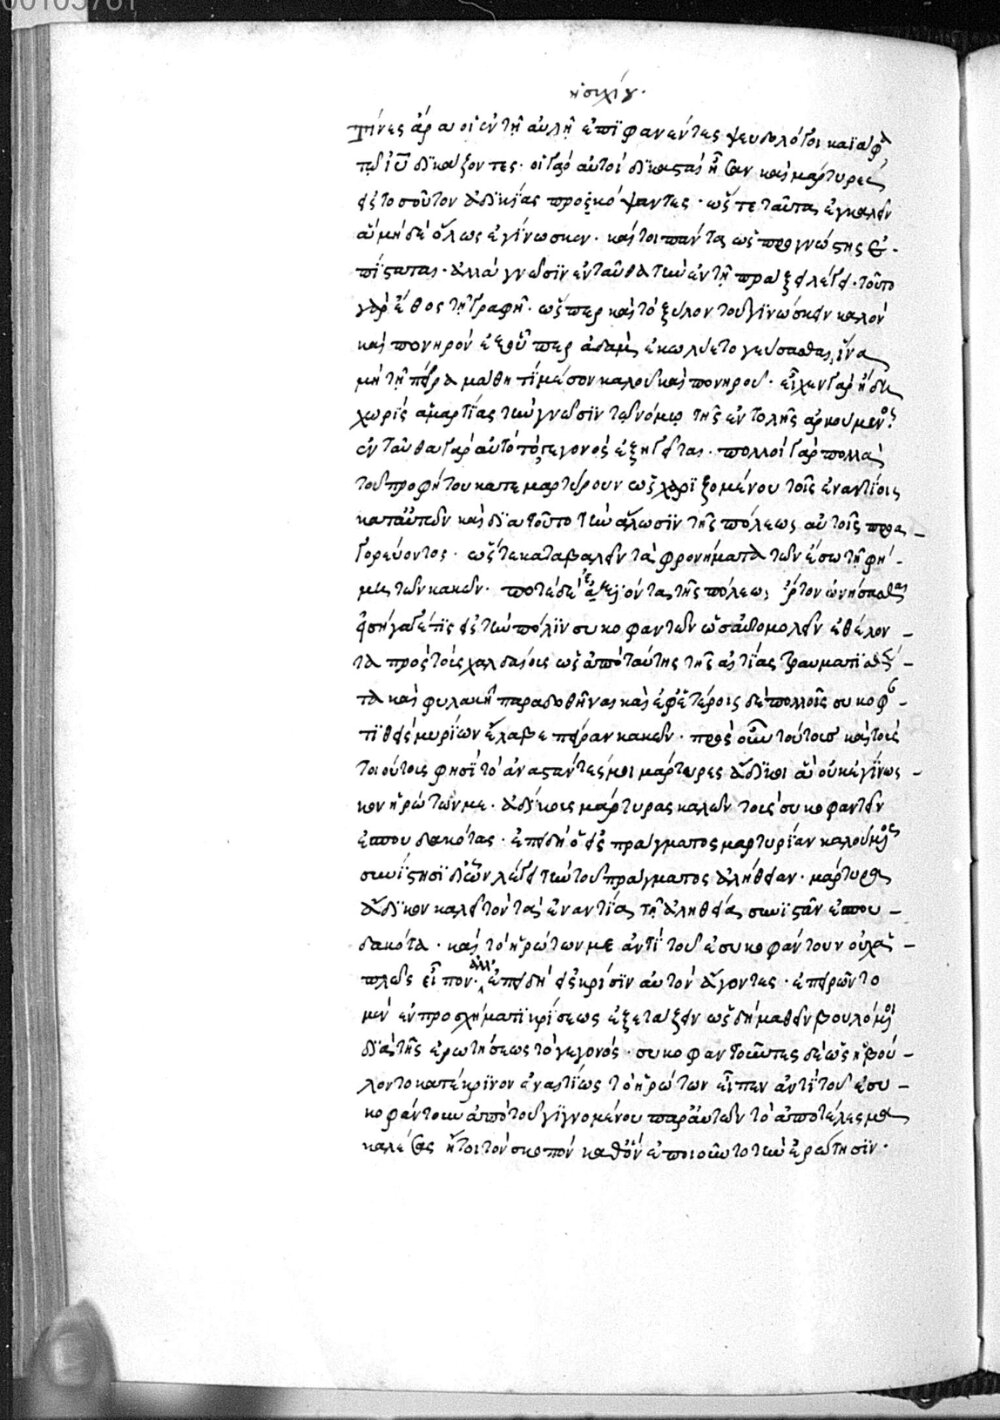 00105781
ἡσυχίου.
Τίνες ἄρα οἱ ἐν τῇ αὐλῇ ἐπιφανέντες ψευδολόγοι καὶ
τῷ ἰῦ δικάζοντες· οἱ γὰρ αὐτοὶ δικασταὶ ἦσαν καὶ μάρτυρες
εἰς τοσοῦτον ἀδικίας προσκόψαντες· ὥστε ταῦτα ἐγκαλεῖν
ἃ μηδὲ ὅλως ἐγίνωσκεν· καίτοι πάντα ὡς προγνώστης
πίσταται· ἀλλὰ γνῶσιν ἐνταῦθα τὴν ἐν τῇ πράξει λέγει· τοῦτο
γὰρ ἔθος τῇ γραφῇ· ὥσπερ καὶ τὸ ξύλον τοῦ γινώσκειν καλὸν
καὶ πονηρὸν ἐξ οὗπερ ἀδὰμ ἐκωλύετο γεύσασθαι, ἵνα
μὴ τῇ πείρα μάθη τί μέσον καλοῦ καὶ πονηροῦ· εἶχεν γὰρ ἤδη
χωρὶς ἁμαρτίας τὴν γνῶσιν τῷ νόμῳ τῆς ἐντολῆς ἀρκούμενος
ἐνταῦθα γὰρ αὐτὸ τὸ γεγονὸς ἐξηγεῖται· πολλοὶ γὰρ πολλὰ
τοῦ προφήτου κατεμαρτύρουν ὡς χαριζομένου τοῖς ἐναντίοις
κατειπεῖν καὶ διατοῦτο τὴν ἅλωσιν τῆς πόλεως αὐτοῖς προα-
γορεύοντος· ὥστε καταβαλεῖν τὰ φρονήματα τῶν ἔσω τῇ φή-
μη τῶν κακῶν· ποτὲ δὲ ἐξιόντα τῆς πόλεως ἄρτον ὠνήσασθαι
εἰσήγαγέ τις εἰς τὴν πόλιν συκοφαντῶν ὡς αὐτομολεῖν ἐθέλον-
τα πρὸς τοὺς χαλδαίους ὡς ἀπὸ ταύτης τῆς αἰτίας τραυματισθέν-
τα καὶ φυλακῆ παραδοθῆναι καὶ ἐφ' ἑτέροις δὲ πολλοῖς συκοφ-
τηθεὶς μυρίων ἔλαβε πεῖραν κακῶν· πρὸς οὖν τούτους καὶ τοὺς
τοιούτους φησὶ τὸ ἀναστάντες μοι μάρτυρες ἄδικοι ἃ οὐκ ἐγίνωσ-
κον ἠρώτων με· ἀδίκους μάρτυρας καλῶν τοὺς συκοφαντεῖν
ἐσπουδακότας· ἐπειδὴ ὁ εἰς πράγματος μαρτυρίαν καλούμενος
συνίστησι λέγει τὴν τοῦ πράγματος ἀλήθειαν· μάρτυρα
ἄδικον καλεῖ τὸν τὰ ἐναντία τῇ ἀληθεία συνιστᾶν ἐσπου-
δακότα· καὶ τὸ ἠρώτων με ἀντὶ τοῦ ἐσυκοφάντουν οὐχ ἁ-
πλῶς εἶπον· ἀλλ' ἐπειδὴ εἰς κρίσιν αὐτὸν ἄγοντες· ἐπειρῶντο
μὲν ἐν προσχήματι κρίσεως ἐξετάζειν ὡς δὴ μαθεῖν βουλόμενοι
διὰ τῆς ἐρωτήσεως τὸ γεγονός· συκοφαντοῦντες δὲ ὡς ἠβού-
λοντο κατέκρινον ἐναντίως τὸ ἠρώτων εἶπεν ἀντὶ τοῦ ἐσυ-
κοφάντουν ἀπὸ τοῦ γιγνομένου παρ' αὐτῶν τὸ ἀποτέλεσμα
καλέσας ἤτοι τὸν σκοπὸν καθ' ὃν ἐποιοῦντο τὴν ἐρώτησιν·